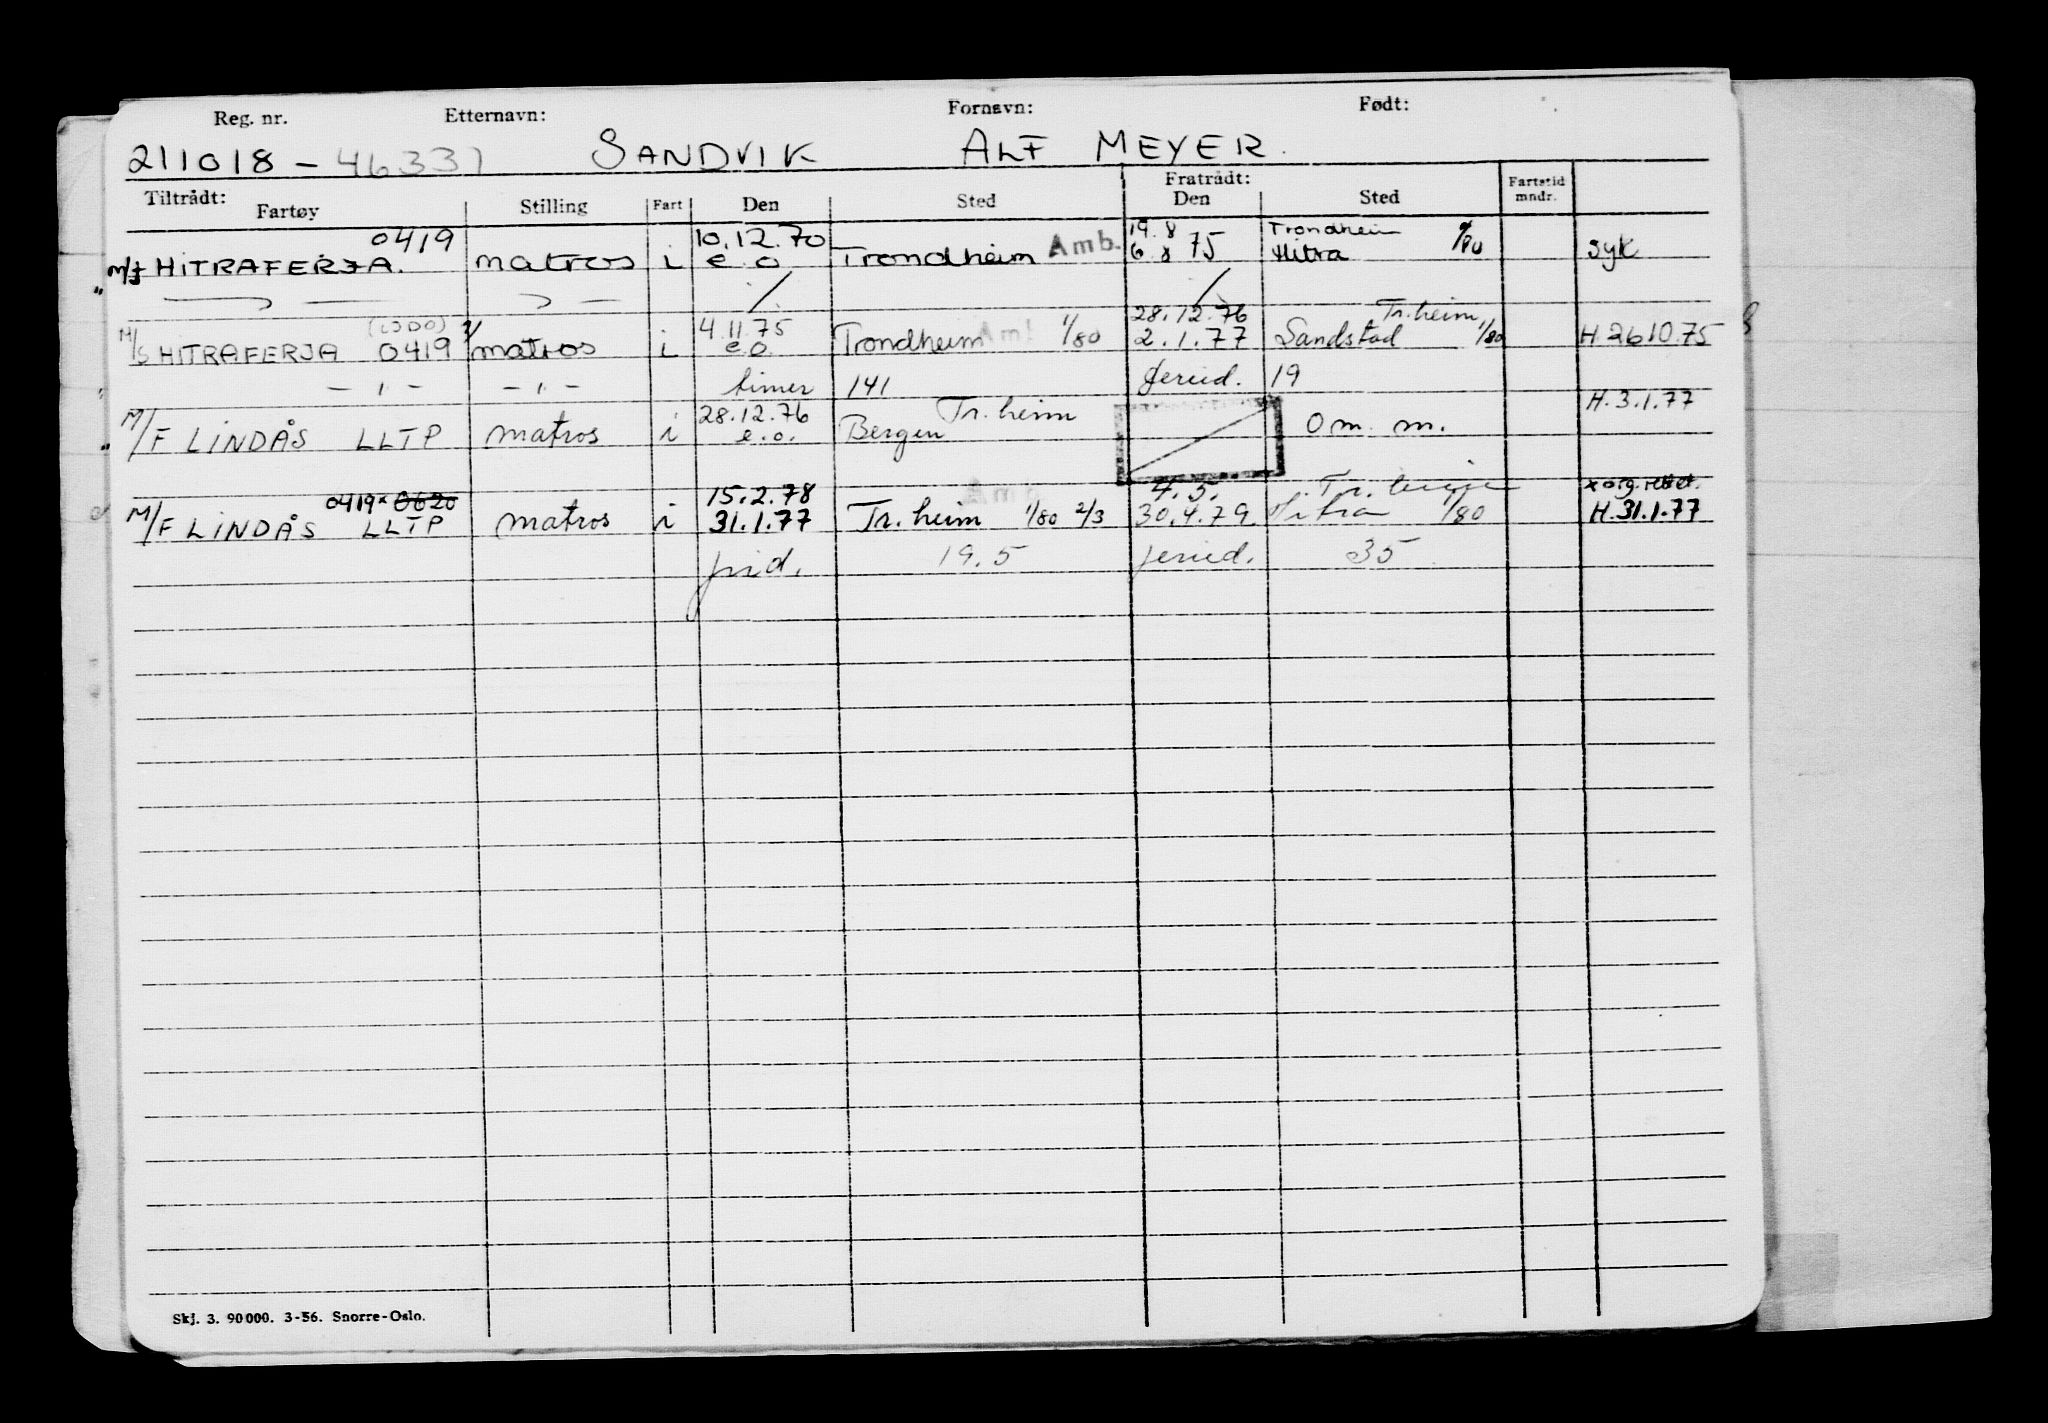 Reg. nr. Etternavn: Fornavn: Født:
211018 - 46337 SANDVIK ALF MEYER
Tiltrådt: Fratrådt: Fartstid
Fartøy Stilling Fart Den Sted Den Sted mndr.
0419 10.12.70 19.8 Trondheim
M/F HITRAFERJA. matros i e o Trondheim Amb. 6 8 75 Hitra syk
(LJDO) 4.11.75 28.12.76 Tr.heim
M/S HITRAFERJA 0419 matros i e.o. Trondheim Amb 1/80 2.1.77 Sandstad 1/80 H.26.10.75
— " — — " — timer 141 feried. 19
28.12.76 Tr.heim H.3.1.77
M/F LINDÅS LLTP matros i e.o. Bergen Om. m.
0419 x 0620 15.2.78 Amb 4.5. Tr. heim x org. rettet.
M/F LINDÅS LLTP matros i 31.1.77 Tr.heim 1/80 2/3 30.4.79 Hitra 1/80 H.31.1.77
frid. 19.5 feried. 35
Skj. 3. 90 000. 3-56. Snorre-Oslo.